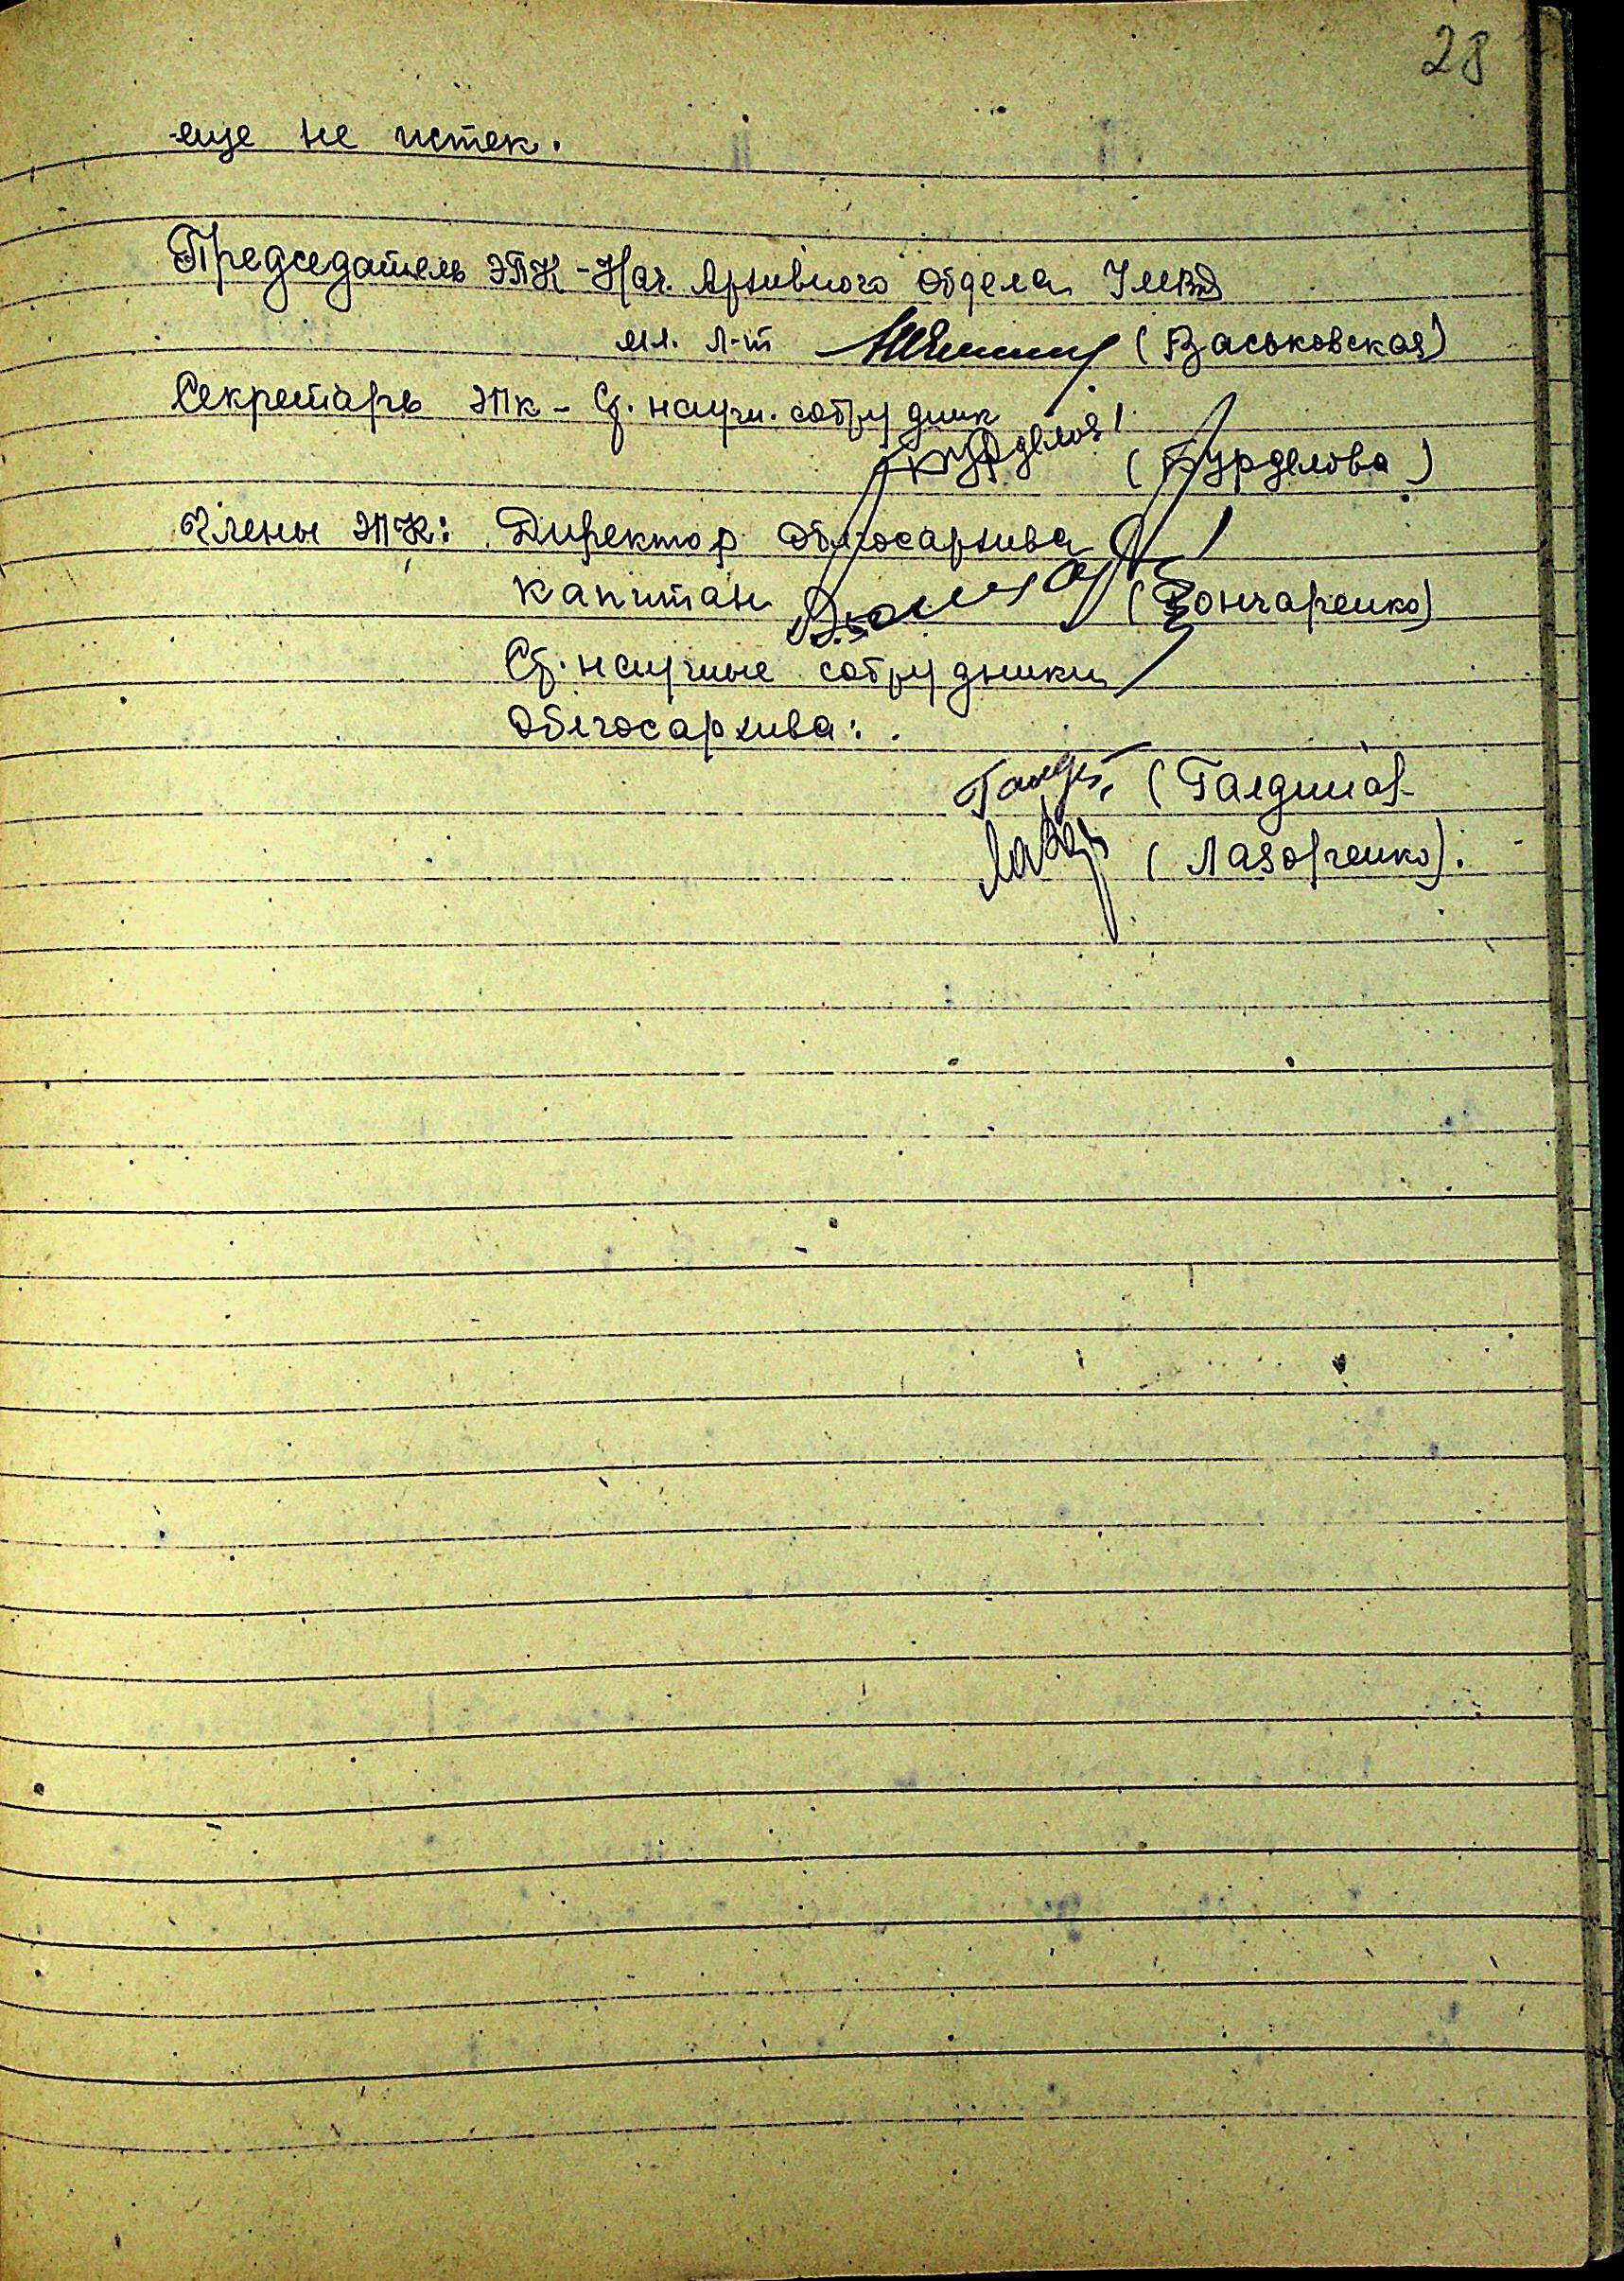 28
еще не истек.
Председатель ЭПК - Нач. Архивного отдела УМВД
мл. л-т (Васьковская)
Секретарь ЭПК - Ст. научн. сотрудник
(Бурделова)
Члены ЭПК: Директор Облгосархива
капитан (Гончаренко)
Ст. научные сотрудники
Облгосархива:
(Галдина)
(Лазорченко).